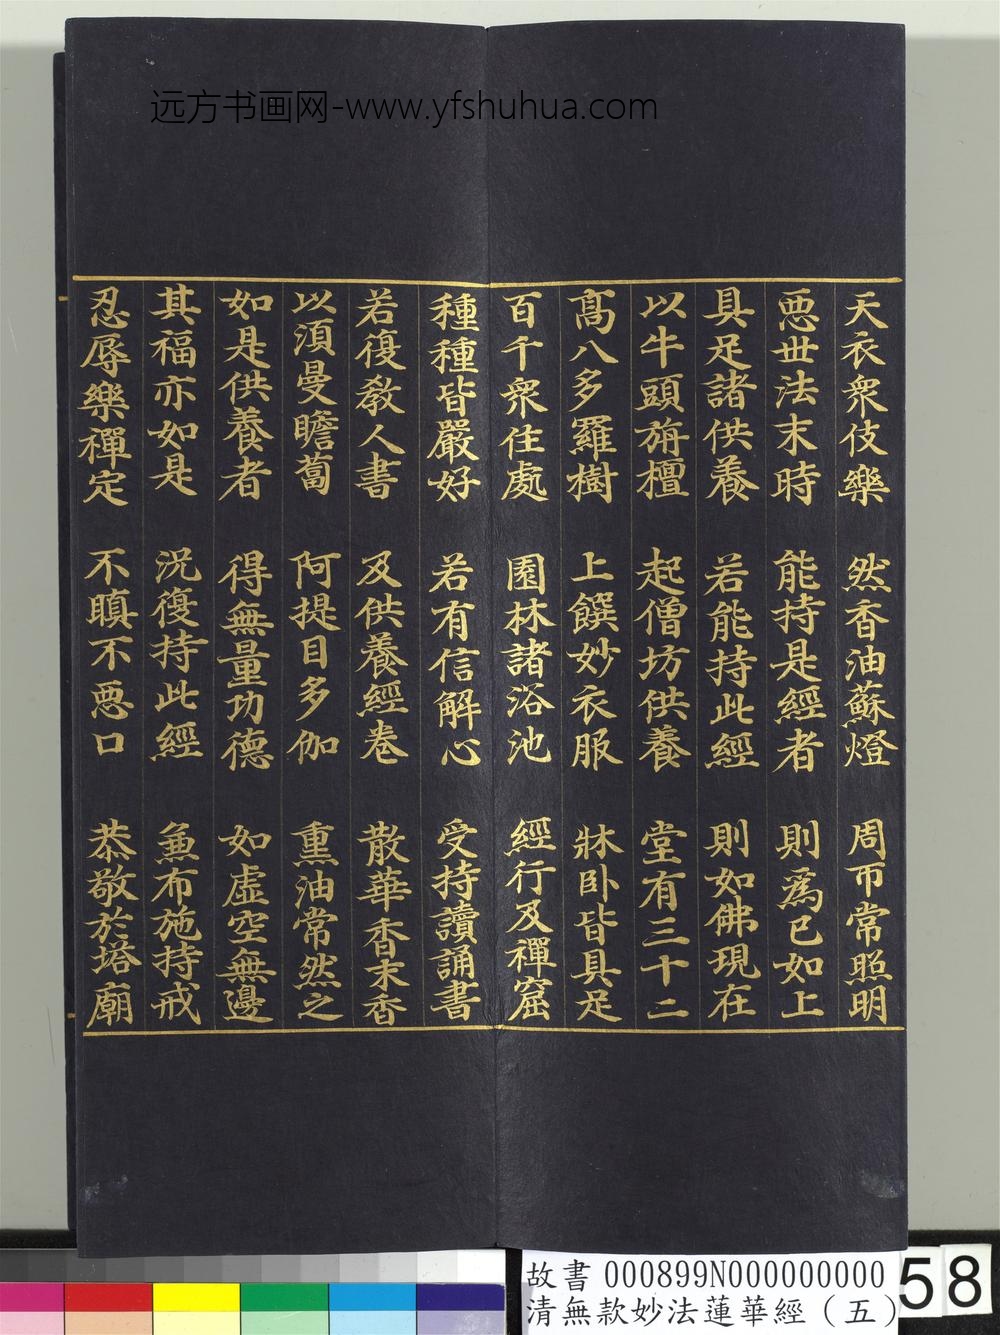 远方书画网-www.yfshuhua.com
天衣衆伎樂 然香油蘇燈 周帀常照明
惡世法末時 能持是經者 則爲已如上
具足諸供養 若能持此經 則如佛現在
以牛頭旃檀 起僧坊供養 堂有三十二
高八多羅樹 上饌妙衣服 牀卧皆具足
百千衆住處 園林諸浴池 經行及禪窟
種種皆嚴好 若有信解心 受持讀誦書
若復教人書 及供養經卷 散華香末香
以須曼瞻蔔 阿提目多伽 熏油常然之
如是供養者 得無量功德 如虛空無邊
其福亦如是 況復持此經 兼布施持戒
忍辱樂禪定 不瞋不惡口 恭敬於塔廟
故書 000899N000000000
清無款妙法蓮華經（五）
58